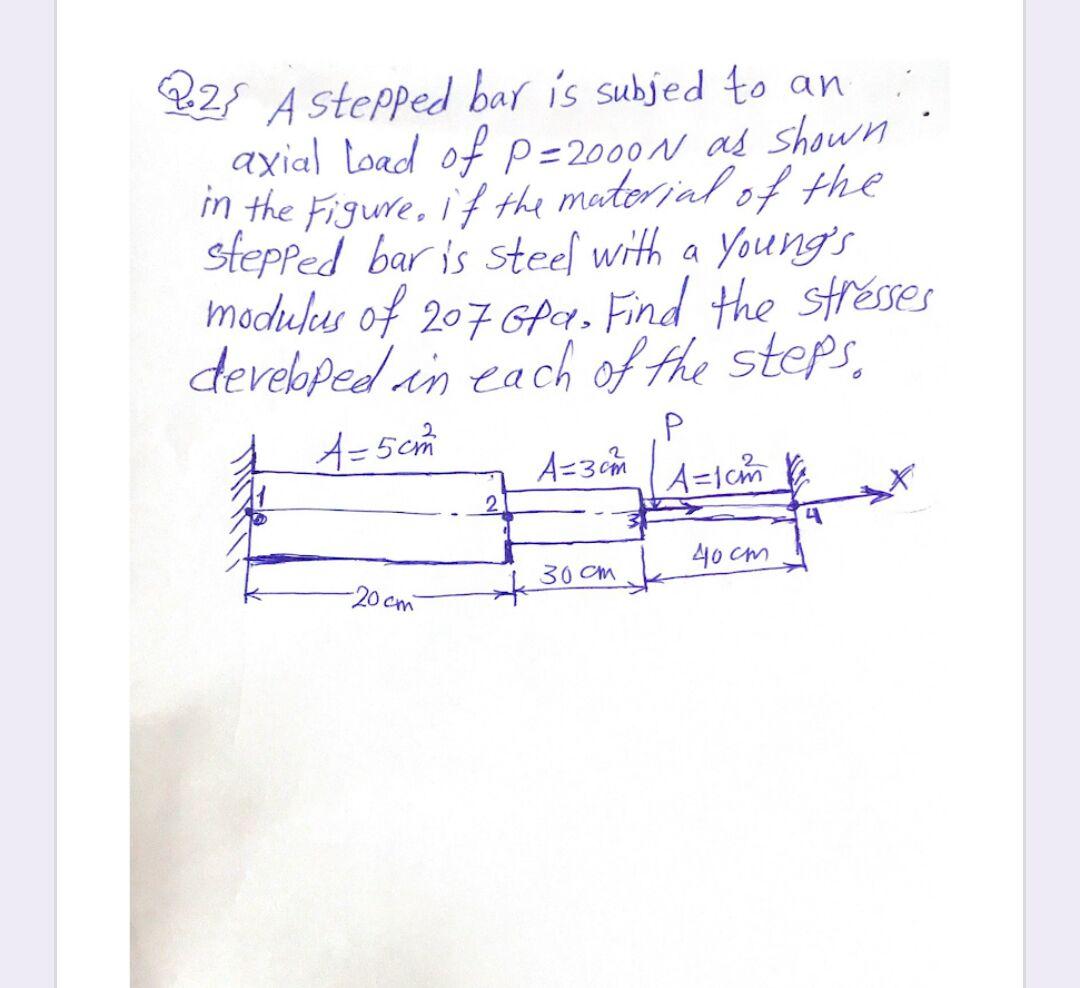 Q.2} A stepped bar is subjed to an
axial load of P=2000N as shown
in the Figure. if the material of the
stepped bar is steel with a Young's
modulus of 207 GPa. Find the stresses
developed in each of the steps.
P
A=5cm²
A=3cm²
A=1cm²
X
1
2
3
4
20 cm
30 cm
40 cm